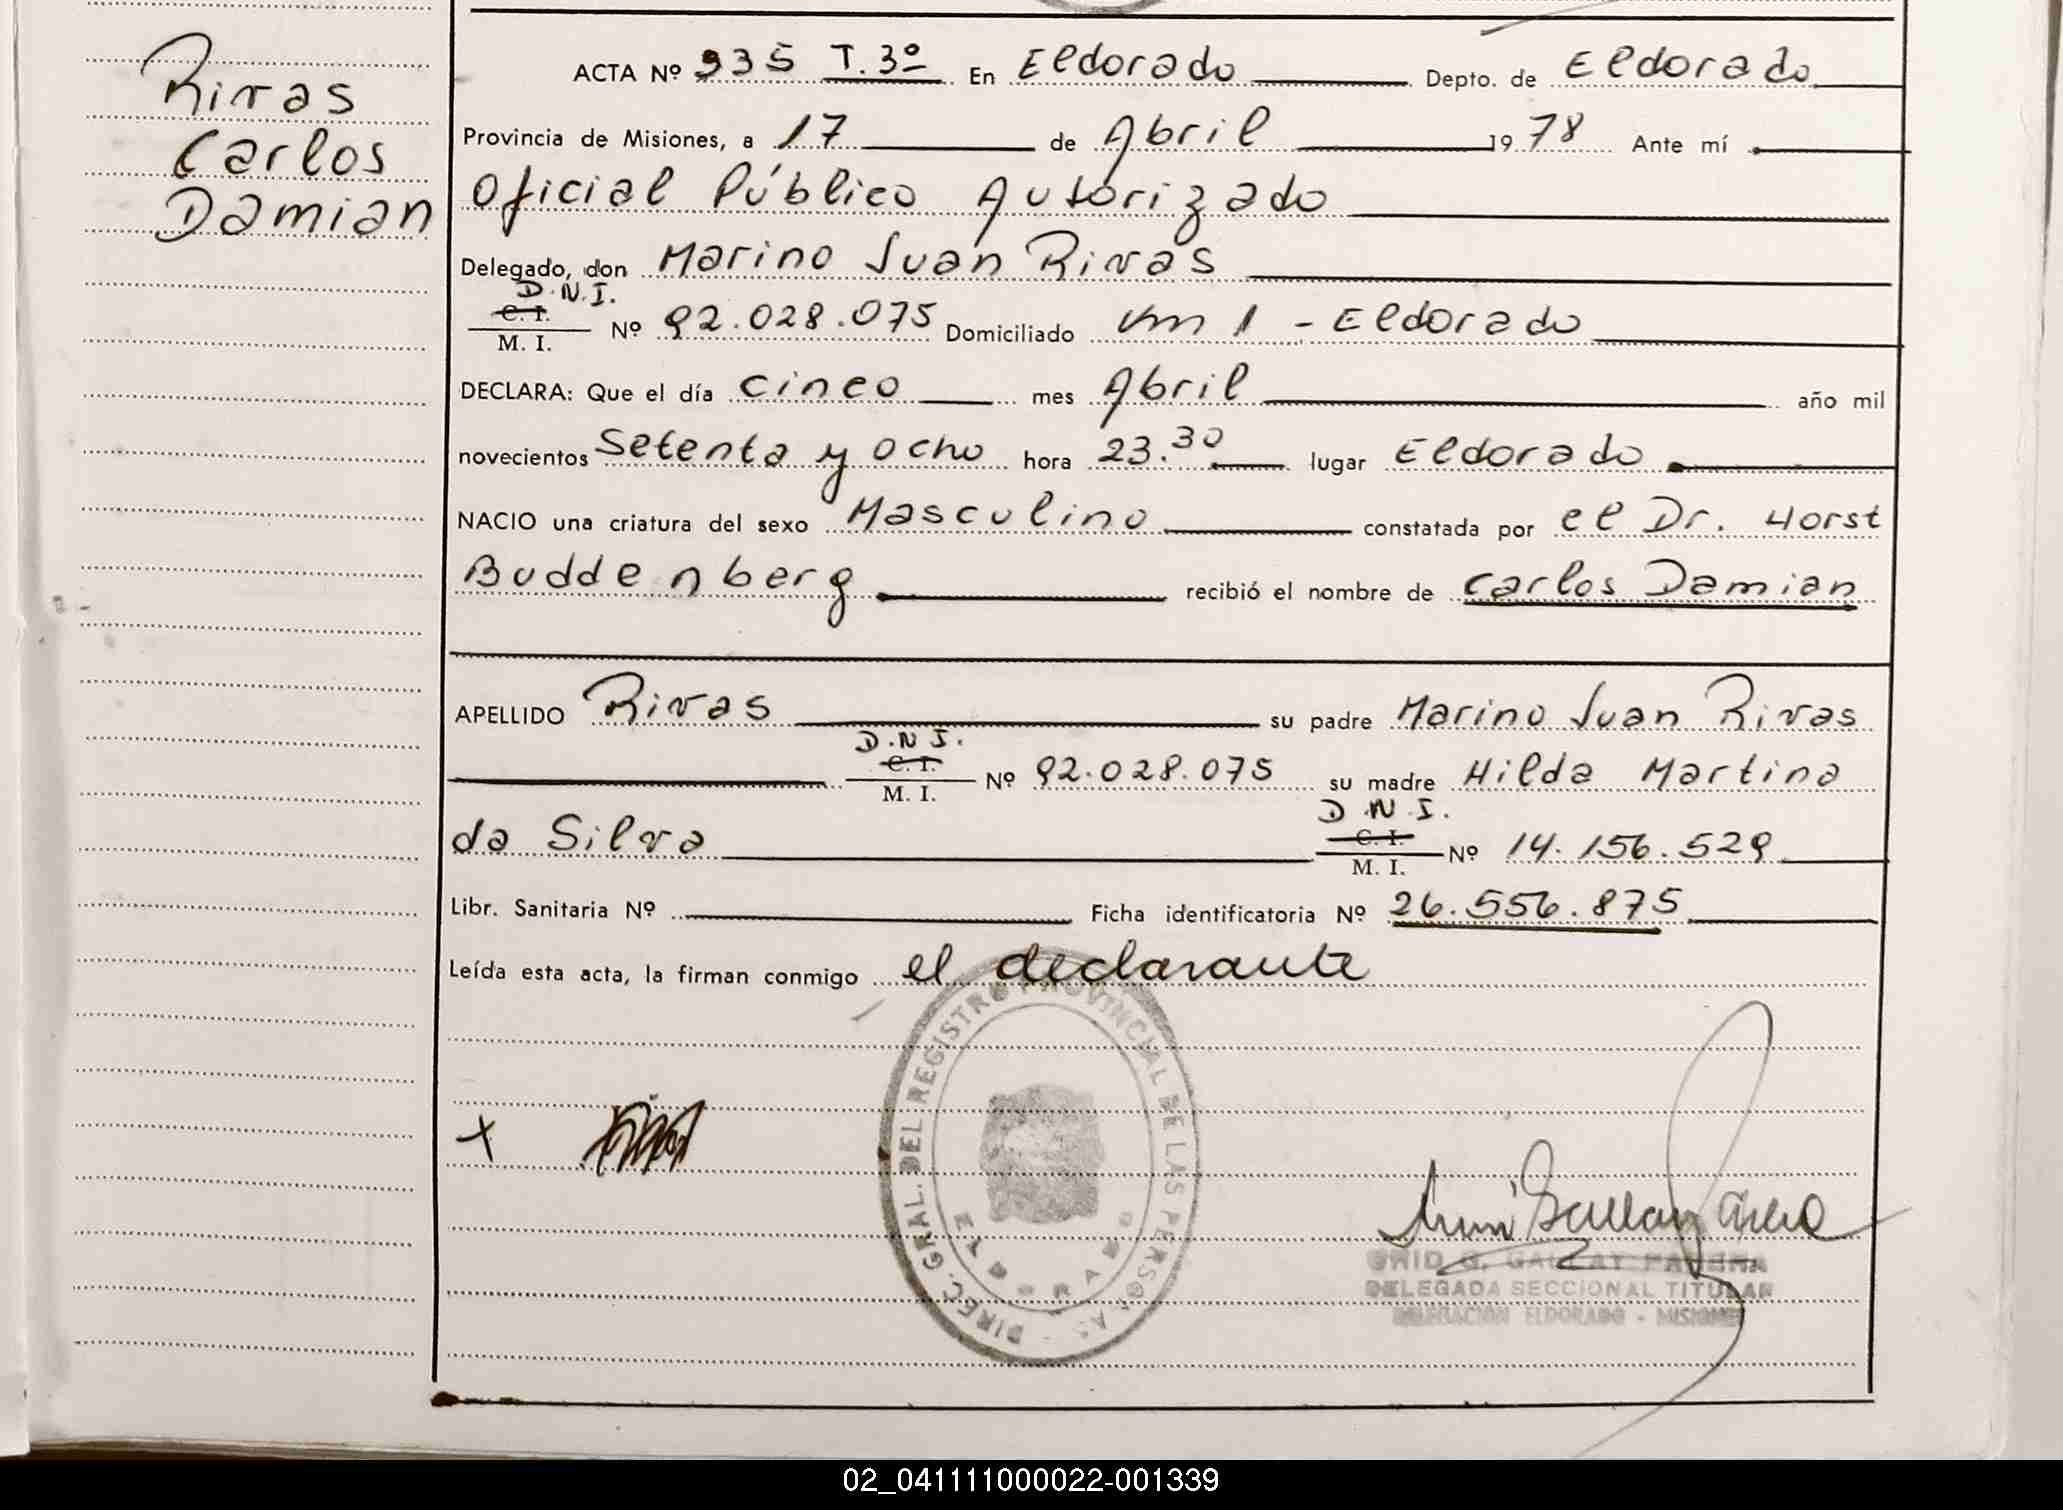 Rivas
Carlos
Damian
ACTA Nº 935 T. 3º En Eldorado Depto. de Eldorado
Provincia de Misiones, a 17 de Abril 1978 Ante mí
Oficial Público Autorizado
Delegado, don Marino Juan Rivas
D.N.I.
C. I.
M. I. Nº 92.028.075 Domiciliado Km 1 - Eldorado
DECLARA: Que el día cinco mes Abril año mil
novecientos Setenta y ocho hora 23.30 lugar Eldorado
NACIO una criatura del sexo Masculino constatada por el Dr. Horst
Buddenberg recibió el nombre de Carlos Damian
APELLIDO Rivas su padre Marino Juan Rivas
D.N.I.
C. I.
M. I. Nº 92.028.075 su madre Hilda Martina
D.N.I.
da Silva C. I.
M. I. Nº 14.156.529
Libr. Sanitaria Nº Ficha identificatoria Nº 26.556.875
Leída esta acta, la firman conmigo el declarante
DIREC. GRAL. DEL REGISTRO PROVINCIAL DE LAS PERSONAS
ELDORADO
DELEGADA SECCIONAL TITULAR
DELEGACION ELDORADO - MISIONES
02_041111000022-001339